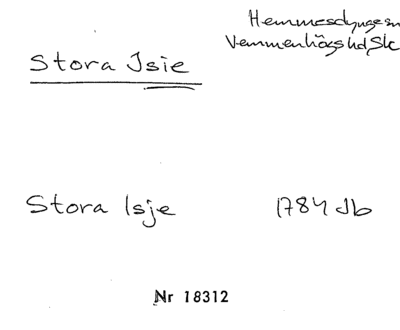 Hemmesdynge sn
Vemmenhögs hd, Sk
Stora Isie
Stora Isje 1784 Jb
Nr 18312